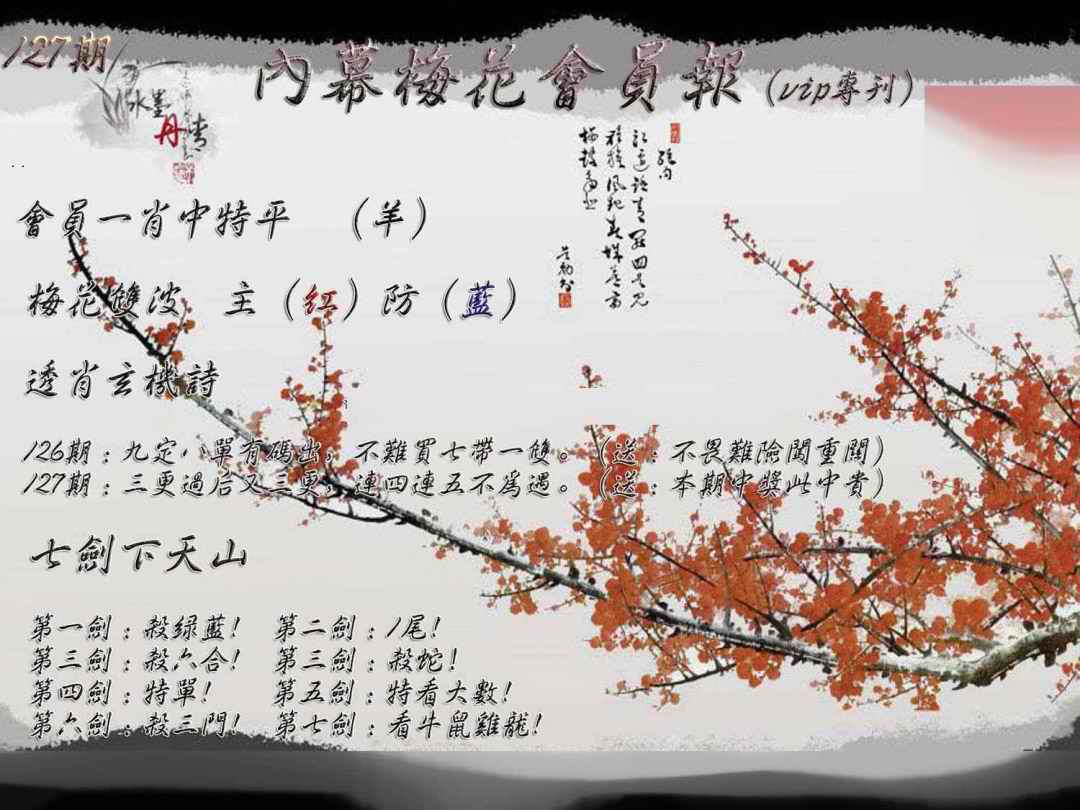 127期
內幕梅花會員報(vip專刊)
水墨
丹青
會員一肖中特平 (羊)
梅花雙波 主(紅)防(藍)
透肖玄機詩
126期:九定,單有碼出,不難買七帶一雙。(送:不畏難險闖重關)
127期:三更過后又三更,連四連五不爲過。(送:本期中獎此中貴)
七劍下天山
第一劍:殺绿藍! 第二劍:1尾!
第三劍:殺六合! 第三劍:殺蛇!
第四劍:特單! 第五劍:特看大數!
第六劍:殺三門! 第七劍:看牛鼠雞龍!